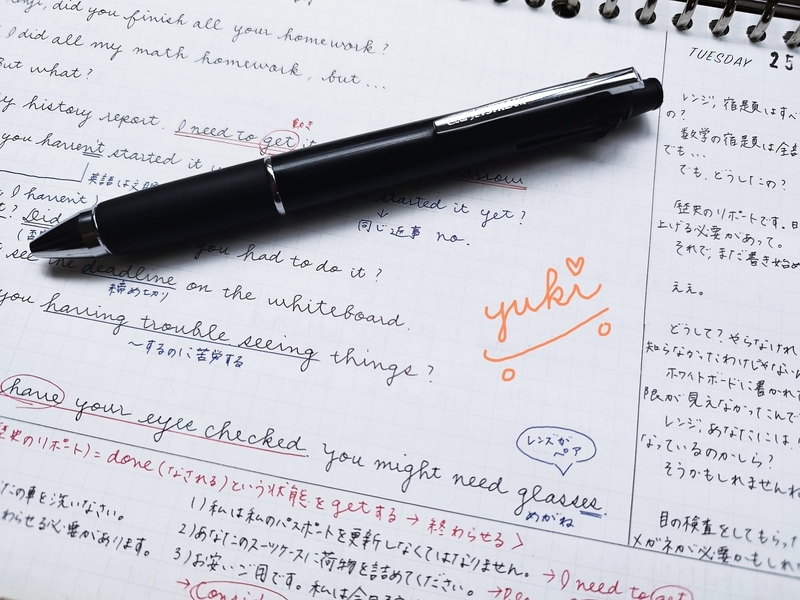 did you finish all your homework?
I did all my math homework, but...
But what?
my history report. I need to get it
動き
you haven't started it
英語は文
I haven't
started it yet?
同じ返事 no.
Did
you had to do it?
see the deadline on the whiteboard.
締め切り
you having trouble seeing things?
〜するのに苦労する
yuki
have your eyes checked. You might need glasses.
レンズが
ペア
めがね
歴史のリポート) = done (なされる) という状態を getする → 終わらせる >
の車を洗いなさい。
わらせる必要があります。
1) 私は私のパスポートを更新しなくてはなりません。 → I need to get
2) あなたのスーツケースに荷物を詰めてください。
3) お安いご用です。私は今日
TUESDAY 25
レンジ, 宿題はすべ
の?
数学の宿題は全部
でも...
でも、どうしたの?
歴史のリポートです。
上げる必要があって。
それで、まだ書き始め
ええ。
どうして? やらなければ
知らなかったわけじゃない
ホワイトボードに書かれて
限が見えなかったんで
レンジ, あなたには
なっているのかしら?
そうかもしれませんね
目の検査をしてもらっ
メガネが必要かもしれ